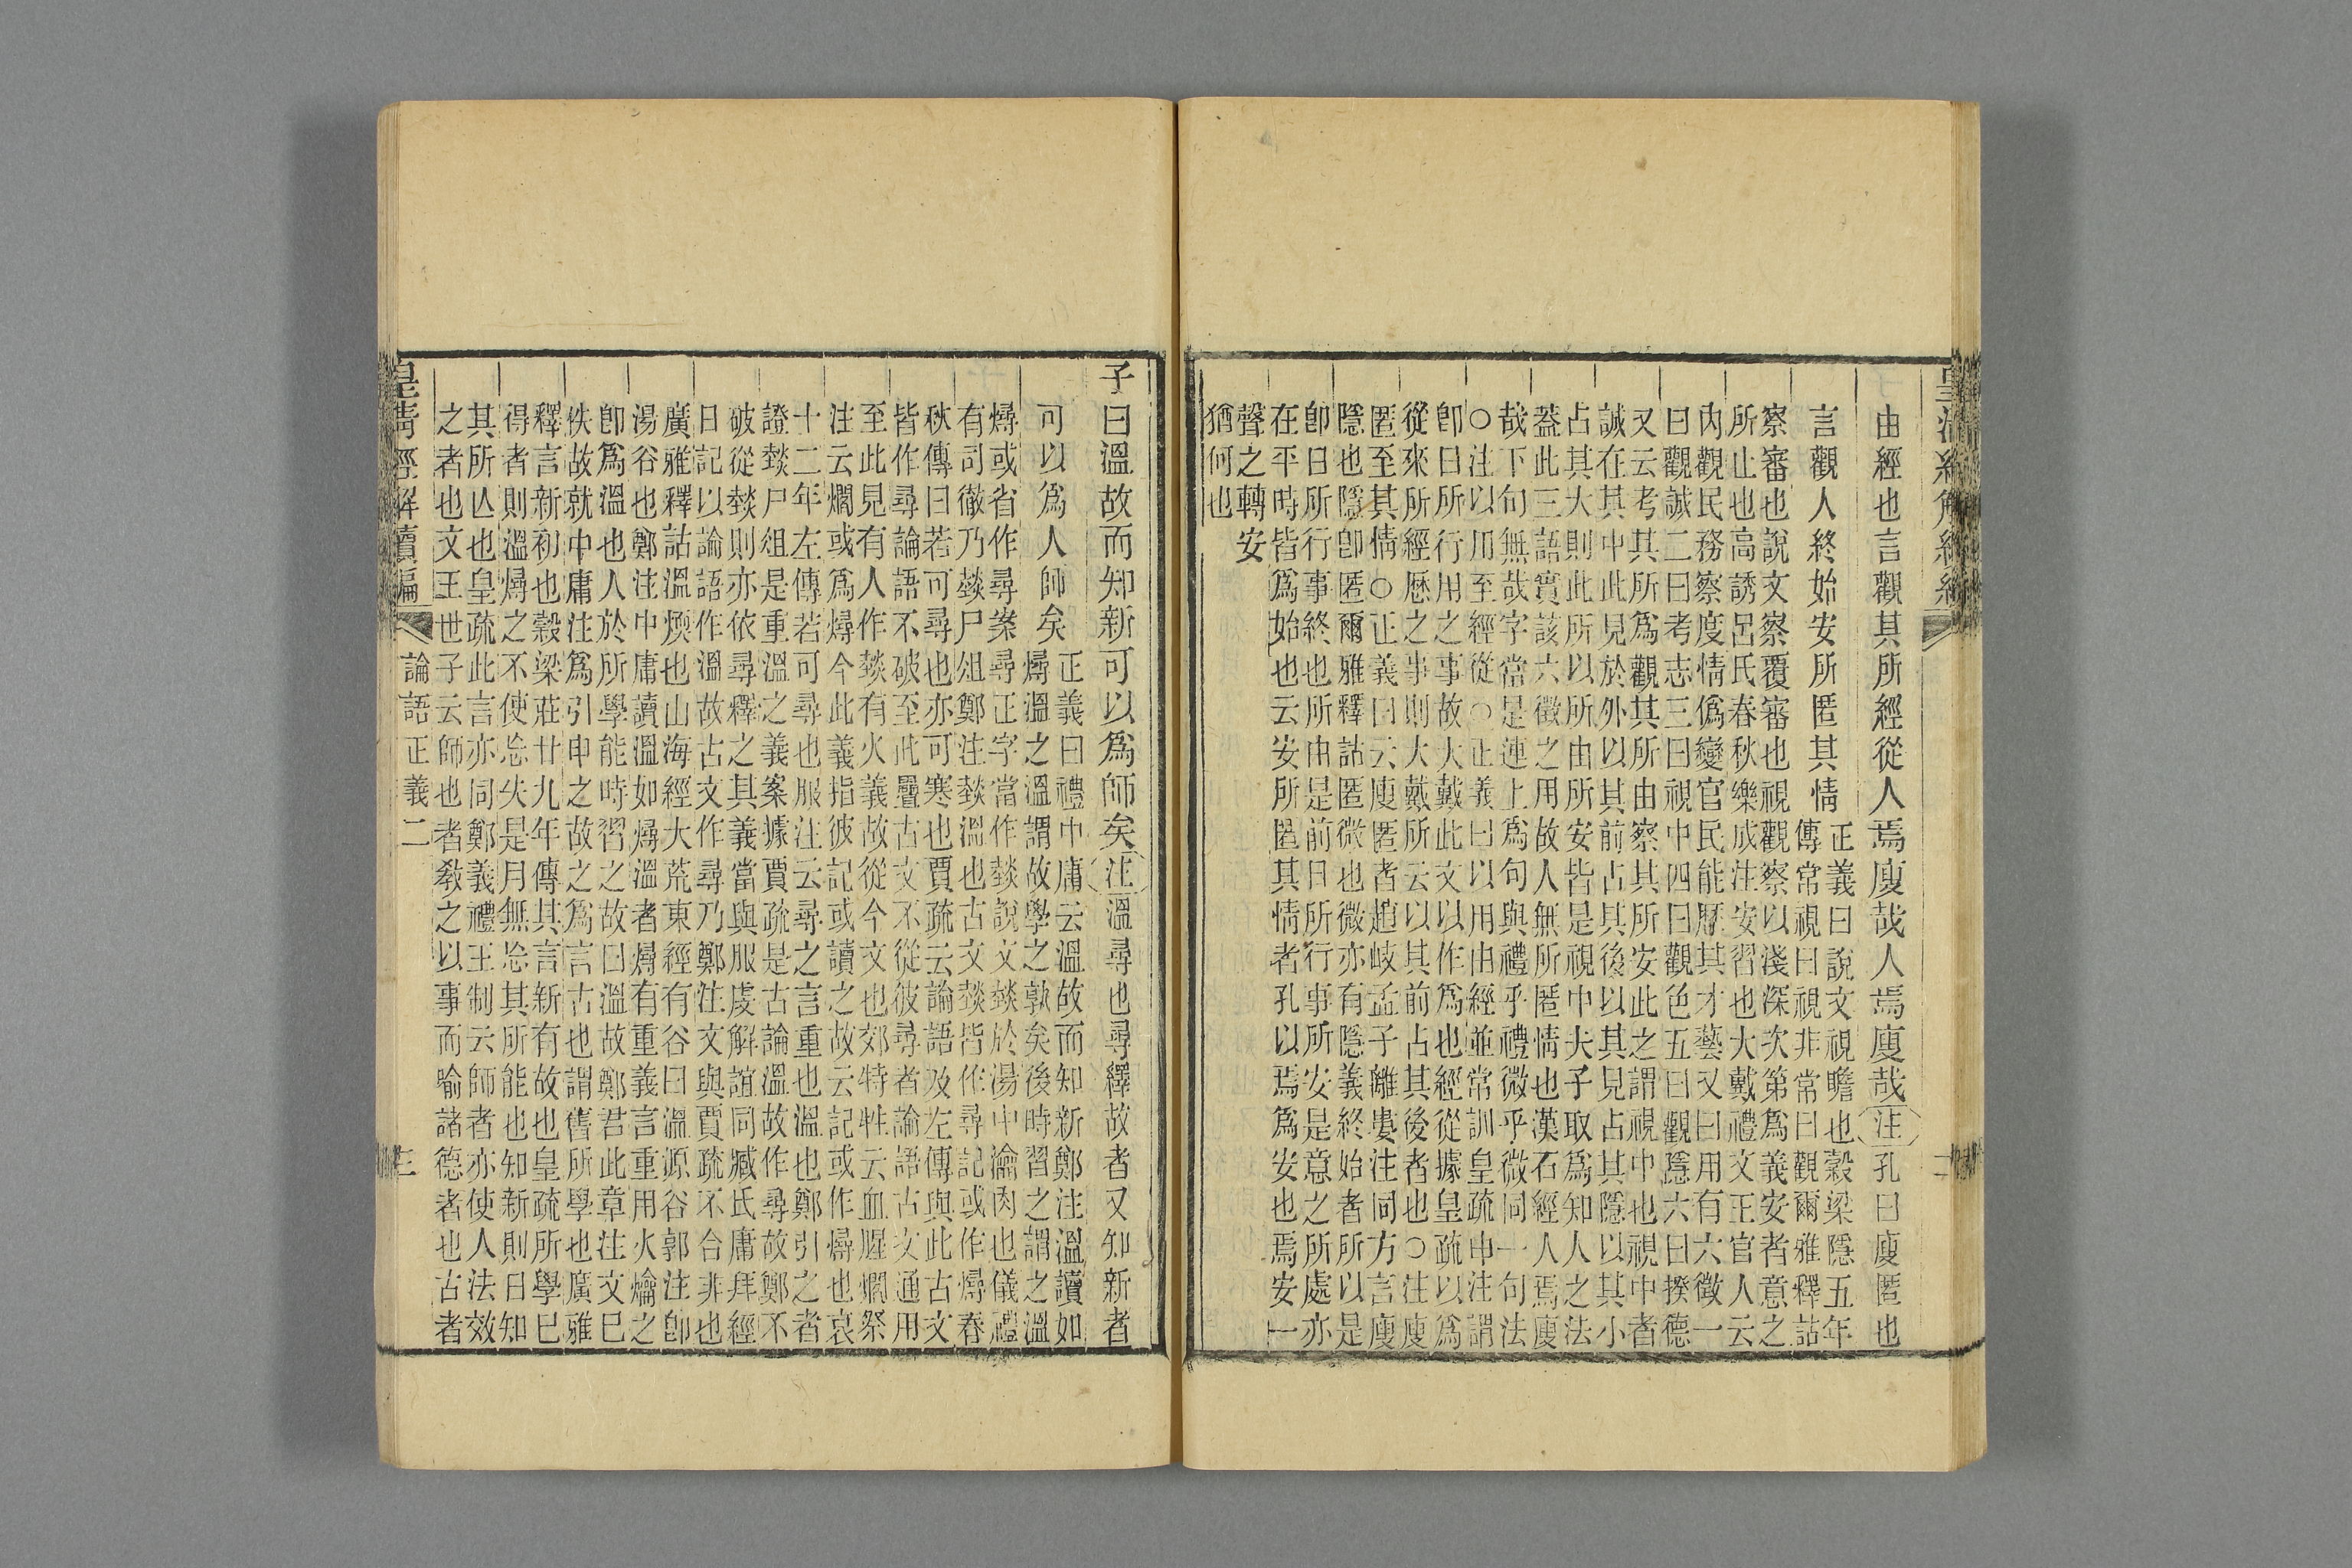 由經也言觀其所經從人焉廋哉人焉廋哉注孔曰廋匿也
言觀人終始安所匿其情正義曰說文視瞻也穀梁隱五年
傳常視曰視非常曰觀爾雅釋詁
察審也說文察覆審也視觀察以淺深次第爲義安者意之
所止也高誘呂氏春秋樂成注安習也大戴禮文王官人云
內觀民務察度情僞變官民能歷其才藝又曰用有六徵一
曰觀誠二曰考志三曰視中四曰觀色五曰觀隱六曰揆德
又云考其所爲觀其所由察其所安此之謂視中也視中者
誠在其中此見於外以其前占其後以其見占其隱以其小
占其大則此所以所由所安皆是視中夫子取爲知人之法
蓋此三語實該六徵之用故人無所匿情也漢石經人焉廋
哉下句無哉字當是連上爲句與禮乎禮微乎微同一句法
○注以用至經從○正義曰以用由經並常訓皇疏申注謂
卽日所行用之事故大戴此文以作爲也經從據皇疏以爲
從來所經歷之事則大戴所云以其前占其後者也○注廋
匿至其情○正義曰云廋匿者趙岐孟子離婁注同方言廋
隱也隱卽匿爾雅釋詁匿微也微亦有隱義終始者所以是
卽日所行事終也所由是前日所行事所安是意之所處亦
在平時皆爲始也云安所匿其情者孔以焉爲安也焉安一
聲之轉安
猶何也
子曰溫故而知新可以爲師矣注溫尋也尋繹故者又知新者
可以爲人師矣正義曰禮中庸云溫故而知新鄭注溫讀如
燖溫之溫謂故學之孰矣後時習之謂之溫
燖或省作尋案尋正字當作燅說文燅於湯中瀹肉也儀禮
有司徹乃燅尸俎鄭注燅溫也古文燅皆作尋記或作燖春
秋傳曰若可尋也亦可寒也賈疏云論語及左傳與此古文
皆作尋論語不破至此疊古文不從彼尋者論語古文通用
至此見有人作燅有火義故從今文也郊特牲云血腥爓祭
注云爓或爲燖今此義指彼記或讀之故云記或作燖也哀
十二年左傳若可尋也服注云尋之言重也溫也鄭引之者
證燅尸俎是重溫之義案據賈疏是古論溫故作尋故鄭不
破從燅則亦依尋釋之其義當與服虔解誼同臧氏庸拜經
日記以論語作溫故古文作尋乃鄭注文與賈疏不合非也
廣雅釋詁溫煗也山海經大荒東經有谷曰溫源谷郭注卽
湯谷也鄭注中庸讀溫如燖溫者燖有重義言重用火爚之
卽爲溫也人於所學能時習之故曰溫故鄭君此章注文已
佚故就中庸注爲引申之故之爲言古也謂舊所學也廣雅
釋言新初也穀梁莊廿九年傳其言新有故也皇疏所學已
得者則溫燖之不使忘失是月無忘其所能也知新則日知
其所亾也皇疏此言亦同鄭義禮王制云師者亦使人法效
之者也文王世子云師也者敎之以事而喻諸德者也古者
皇清經解續編 論語正義二 三